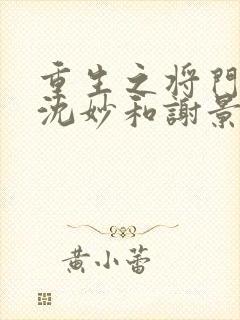 重生之将门
沈妙和谢景
黄小蕾